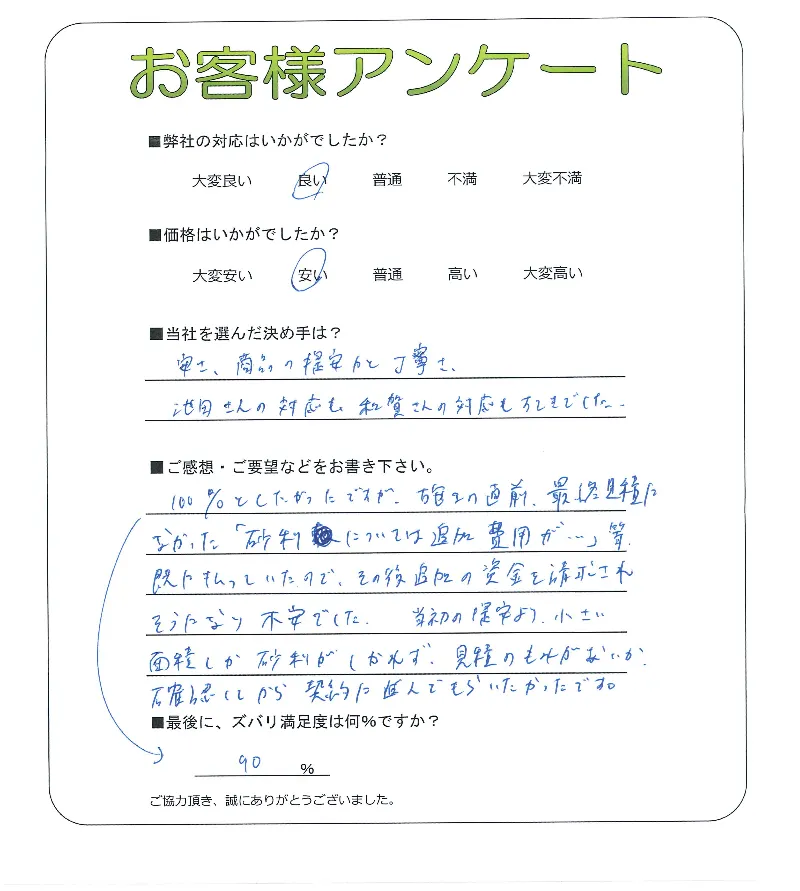 お客様アンケート
■弊社の対応はいかがでしたか？
大変良い 良い 普通 不満 大変不満
■価格はいかがでしたか？
大変安い 安い 普通 高い 大変高い
■当社を選んだ決め手は？
安さ、商品の提案力と丁寧さ、
池田さんの対応も 和賀さんの対応も でした。
■ご感想・ご要望などをお書き下さい。
100%としたかったですが、 の直前、最終見積に
なかった「砂利 については追加費用が…」等、
既に払っていたので、その後追加の資金を請求され
そうになり不安でした。 当初の提案より、小さい
面積しか砂利がしかれず、見積のもれがないか、
確認してから契約に進んでもらいたかったです。
■最後に、ズバリ満足度は何%ですか？
90 %
ご協力頂き、誠にありがとうございました。